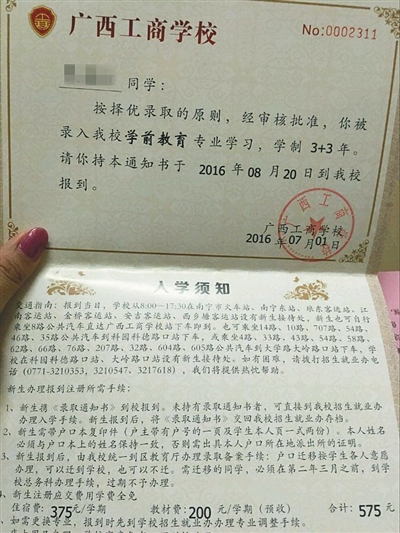 广西工商学校
No:0002311
同学：
按择优录取的原则，经审核批准，你被
录入我校学前教育专业学习，学制 3+3年。
请你持本通知书于 2016 年 08 月 20 日到我校
报到。
广西工商学校
2016 年 07 月 01 日
入学须知
交通指南：报到当日，学校从8:00～17:30在南宁市火车站、南宁东站、埌东客运站、江
南客运站、金桥客运站、安吉客运站、西乡塘客运站设有新生接待处，新生也可自行
乘坐8路公共汽车直达广西工商学校站下车即到。也可乘坐14路、10路、707路、54路、
46路、35路公共汽车到科园科德路口站下车，或乘坐4路、33路、43路、54路、58路、
62路、66路、76路、207路、32路、604路、605路公共汽车到大学路大岭路口站下车，学
校在科园科德路口站、大岭路口站设有新生接待处。如有困难，请拨打招生就业办电
话（0771-3210353，3210547、3217618），我们将提供热忱帮助。
新生办理报到注册所需手续：
1、新生将《录取通知书》到校报到。未持有录取通知书者，可直接到我校招生就业办
办理入学手续。新生报到后，将《录取通知书》交回我校招生就业办存档。
2、新生需带户口本复印件（户主带有户号的一页及学生本人页一式两份）。本人姓名
必须与户口本上的姓名保持一致，否则需出具本人户口所在地派出所的证明。
3、新生报到后，由我校统一到区教育厅办理录取备案手续；户口迁移按学生各人意愿
办理，可以迁到学校，也可以不迁。需迁移的同学，必须在第二年三月之前，到学
校总务科办理手续，过期不予办理。
4、新生注册应交费用学费全免
住宿费：375元/学期 教材费：200 元/学期（预收） 合计：575元
如需更换专业，报到时先到学校招生就业办办理专业调整手续。